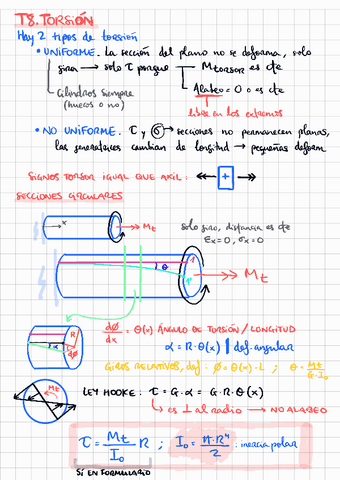 T8. TORSIÓN
Hay 2 tipos de torsión
• UNIFORME. La sección del plano no se deforma, solo
gira → solo τ porque Mtorsor es cte
Alabeo = 0 o es cte
Cilindros siempre
(huecos o no)
libre en los extremos
• NO UNIFORME. τ y σ → secciones no permanecen planas,
las generatrices cambian de longitud → pequeñas deform.
SIGNOS TORSOR IGUAL QUE AXIL: +
SECCIONES CIRCULARES
x Mt
solo giro, distancia es cte
εx = 0, σx = 0
θ 1 1' Mt
R α dφ
dφ/dx = θ(x) ÁNGULO DE TORSIÓN / LONGITUD
α = R·θ(x) | def. angular
GIROS RELATIVOS, def: φ = θ(x)·L ; θ = Mt/G·I₀
Mt
LEY HOOKE: τ = G·α = G·R·θ(x)
↳ es ⊥ al radio → NO ALABEO
τ = Mt/I₀ R ; I₀ = π·R⁴/2 : inercia polar
SI EN FORMULARIO